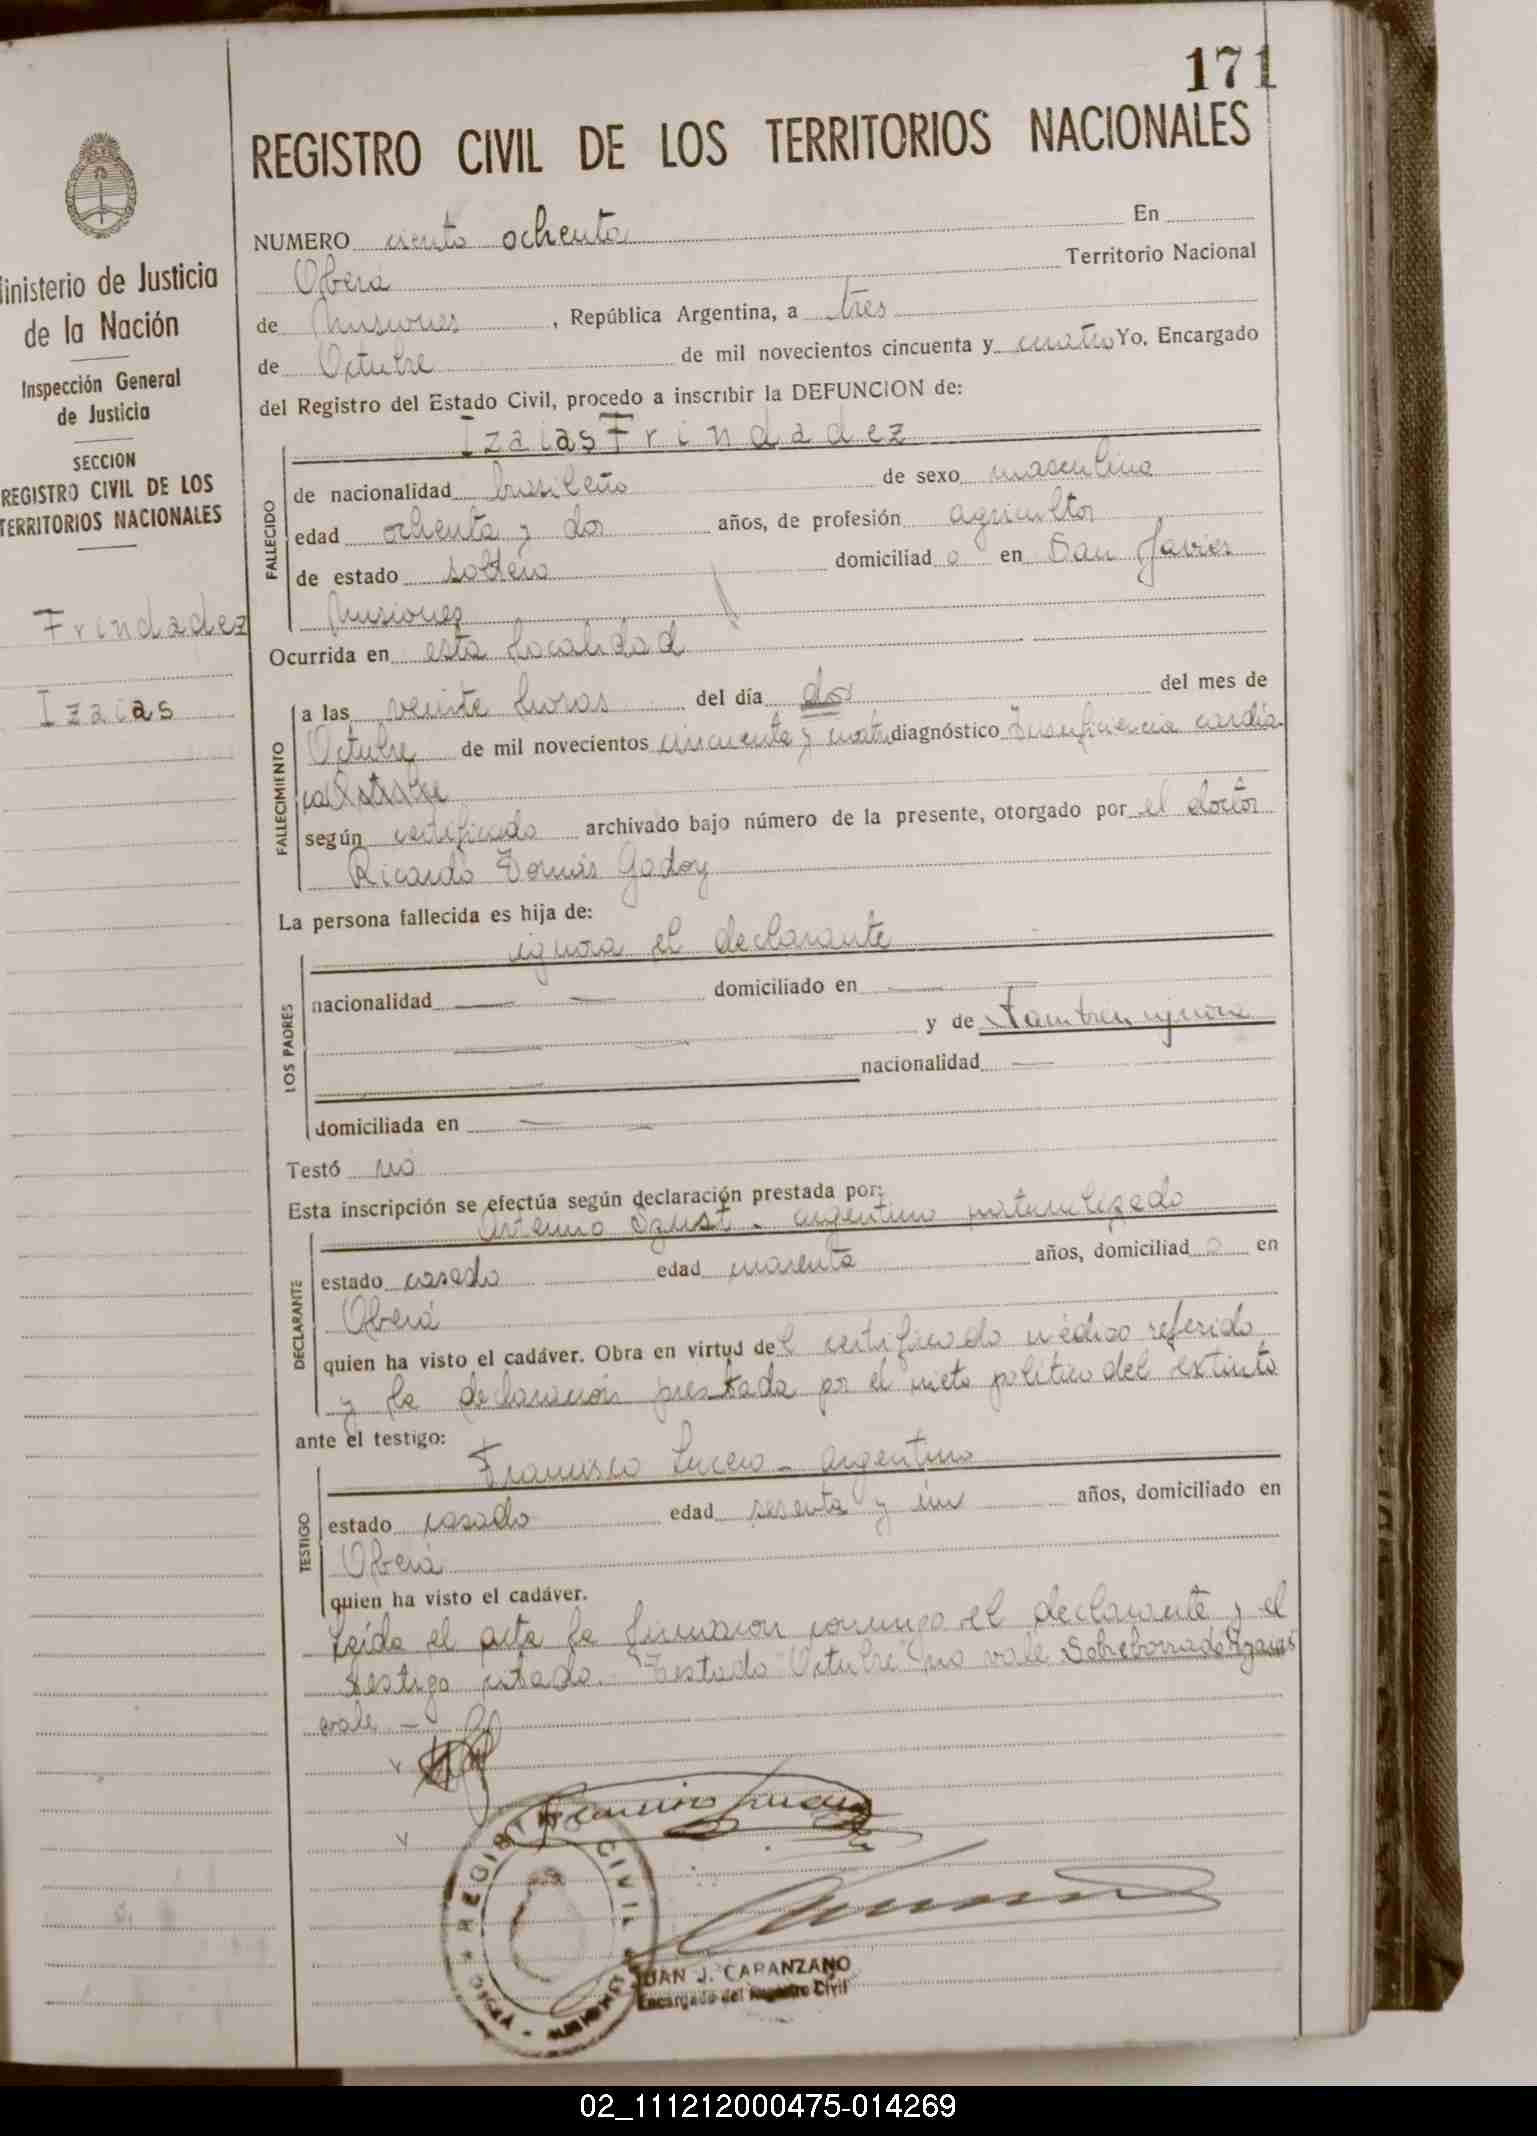 171
REGISTRO CIVIL DE LOS TERRITORIOS NACIONALES
inisterio de Justicia
de la Nación
Inspección General
de Justicia
SECCION
REGISTRO CIVIL DE LOS
TERRITORIOS NACIONALES
Frindadez
Izaias
NUMERO ciento ochenta En
Oberá Territorio Nacional
de Misiones, República Argentina, a tres
de Octubre de mil novecientos cincuenta y cuatro Yo, Encargado
del Registro del Estado Civil, procedo a inscribir la DEFUNCION de:
Izaias Frindadez
FALLECIDO
de nacionalidad brasileño de sexo masculino
edad ochenta y dos años, de profesión agricultor
de estado soltero domiciliado en San Javier
Misiones
Ocurrida en esta localidad
FALLECIMIENTO
a las veinte horas del día dos del mes de
Octubre de mil novecientos cincuenta y cuatro diagnóstico Insuficiencia cardía
ca Octubre
según certificado archivado bajo número de la presente, otorgado por el doctor
Ricardo Tomás Godoy
La persona fallecida es hija de:
ignora el declarante
LOS PADRES
nacionalidad — — domiciliado en —
y de También ignora
nacionalidad —
domiciliada en — —
Testó no
Esta inscripción se efectúa según declaración prestada por:
Artemio - argentino naturalizado
DECLARANTE
estado casado edad cuarenta años, domiciliado en
Oberá
quien ha visto el cadáver. Obra en virtud del certificado médico referido
y la declaración prestada por el nieto político del extinto
ante el testigo:
Francisco Lucero - argentino
TESTIGO
estado casado edad sesenta y un años, domiciliado en
Oberá
quien ha visto el cadáver.
Leída el acta la firmaron conmigo el declarante y el
testigo citado. Testado "Octubre" no vale Sobreborrado "Izaias"
vale -
Francisco Lucero
REGISTRO CIVIL
OBERA MISIONES
JUAN J. CAPANZANO
Encargado del Registro Civil
02_111212000475-014269